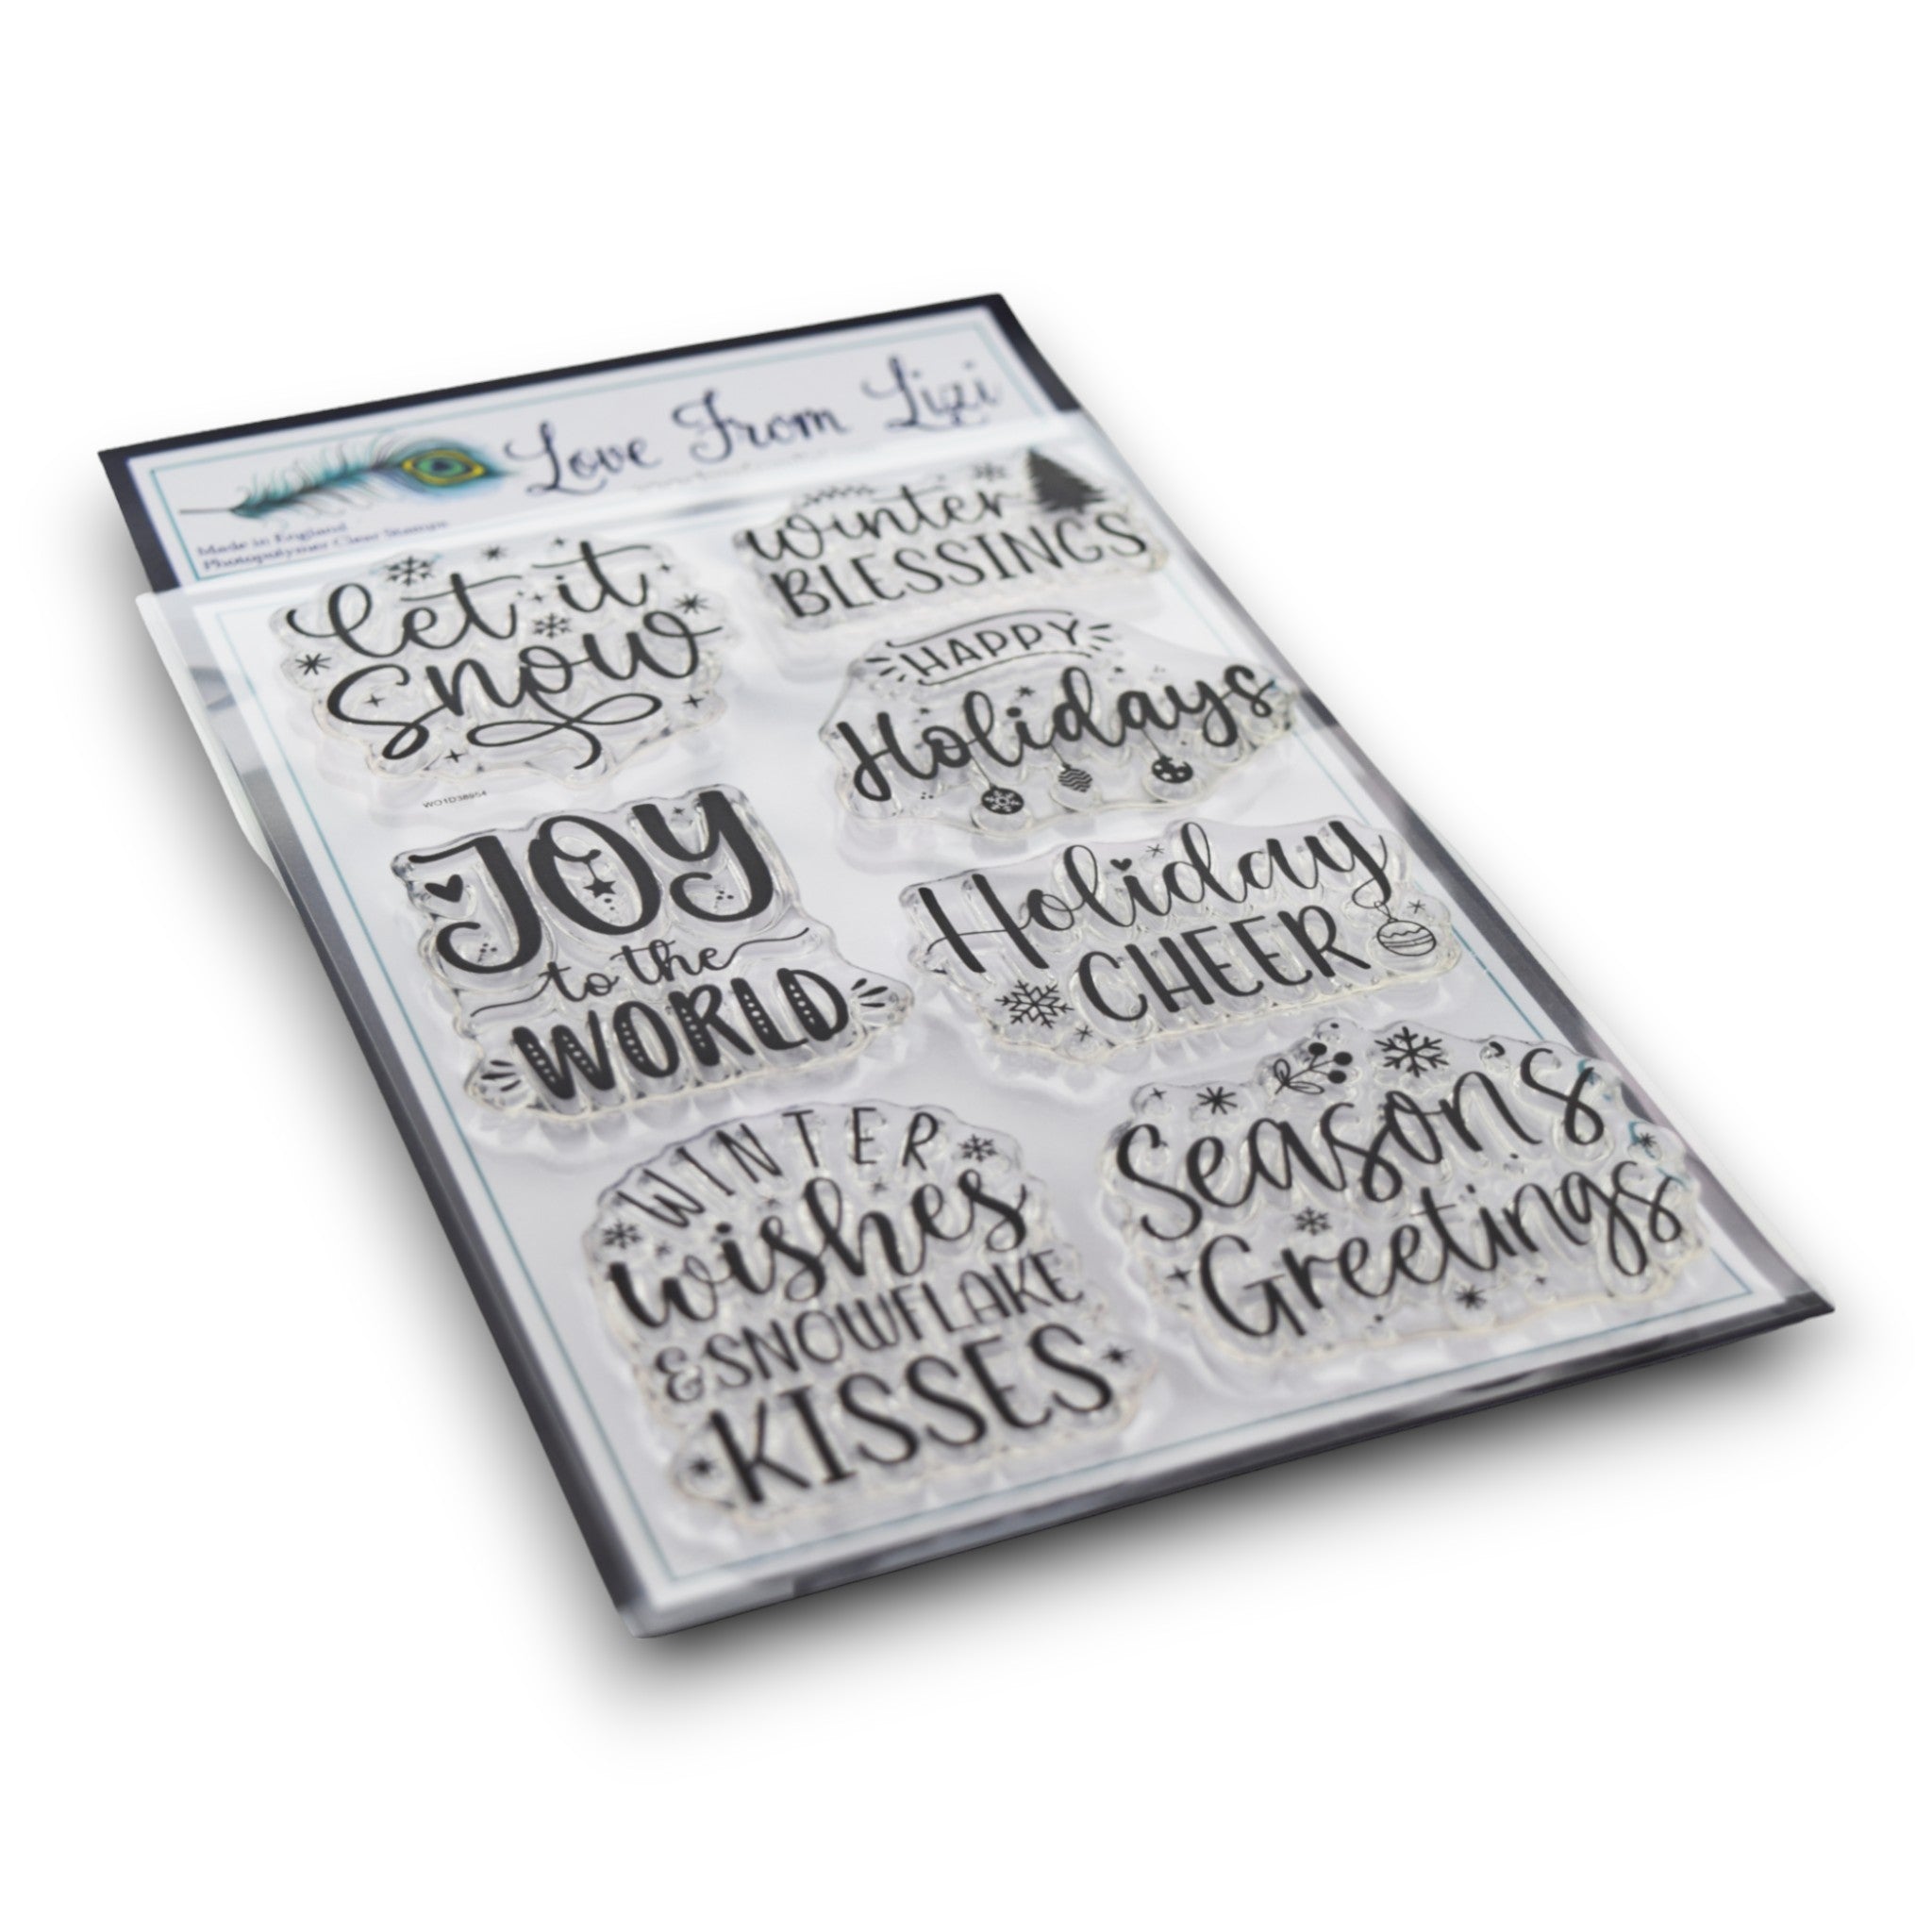 Love From Lizi
Made in England
Photopolymer Clear Stamps
let it
snow
WO1D38954
winter
BLESSINGS
HAPPY
Holidays
JOY
to the
WORLD
Holiday
CHEER
WINTER
wishes
& SNOWFLAKE
KISSES
Season's
Greetings